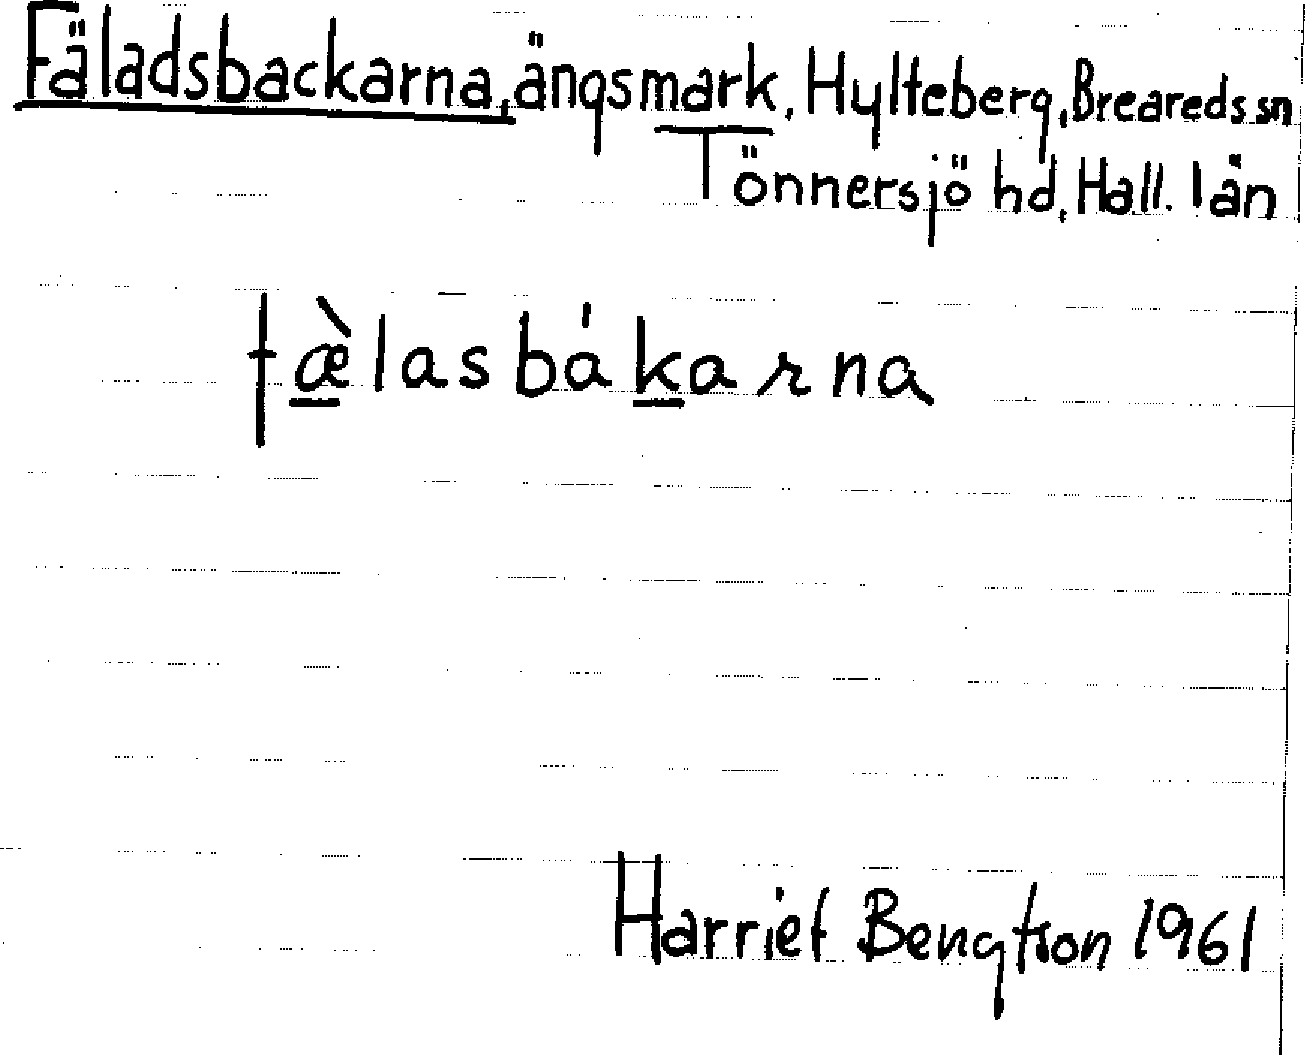 Fäladsbackarna, ängsmark, Hylteberg, Breareds sn
Tönnersjö hd, Hall. län
fæ̀lasbákarna
Harriet Bengtson 1961